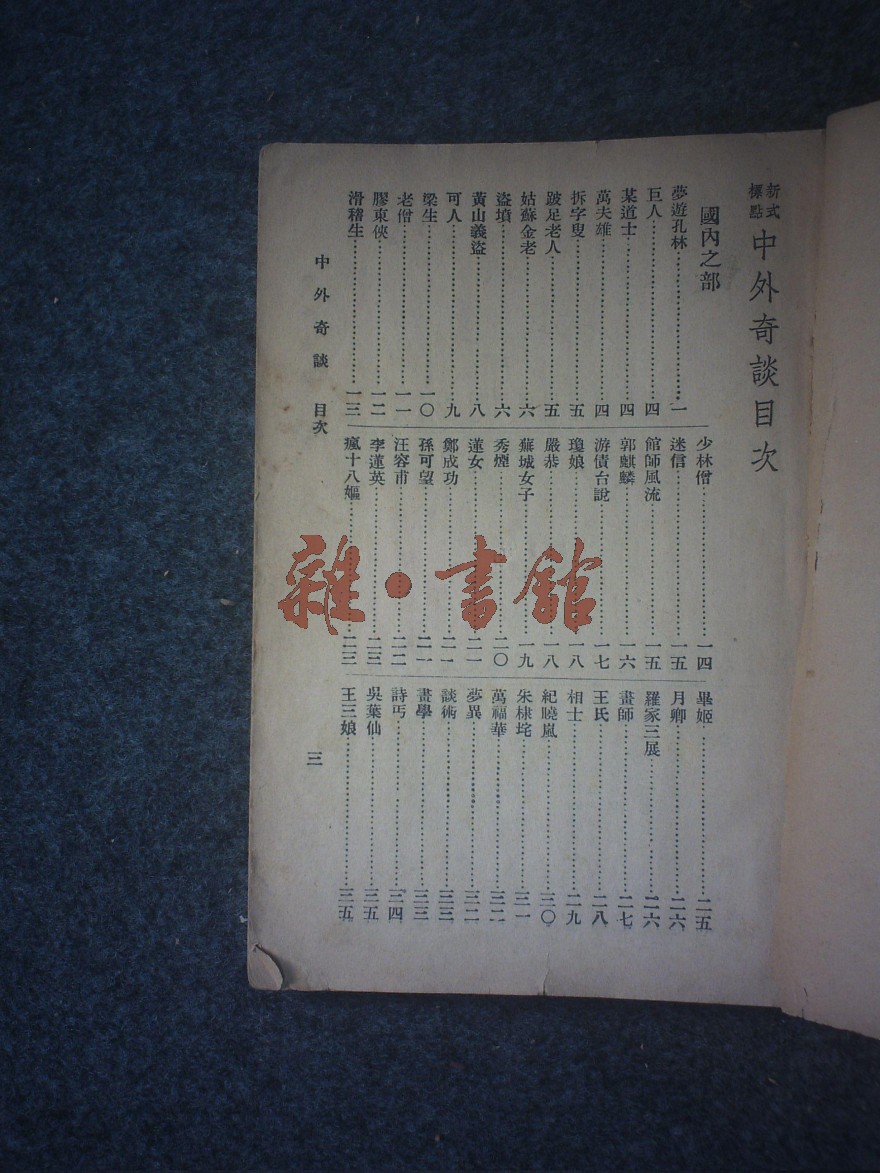 新式標點 中外奇談目次
國內之部
夢遊孔林 一
巨人 四
某道士 四
萬夫雄 四
拆字叟 五
跛足老人 五
姑蘇金老 六
盜墳 六
黃山義盜 八
可人 九
梁生 一〇
老僧 一一
膠東俠 一二
滑稽生 一三
少林僧 一四
迷信 一五
館師風流 一五
郭麒麟 一六
游債台說 一七
瓊娘 一八
嚴恭 一八
蕪城女子 一九
秀煙 二〇
蓮女 二一
鄭成功 二一
孫可望 二一
汪容甫 二二
李蓮英 二三
瘋十八嫗 二三
畢姬 二五
月卿 二六
羅家三展 二六
畫師 二七
王氏 二八
相士 二九
紀曉嵐 三〇
朱棣垞 三一
萬福華 三二
夢異 三二
談術 三三
畫學 三三
詩丐 三四
吳葉仙 三五
王三娘 三五
中外奇談 目次
三
雜·書館